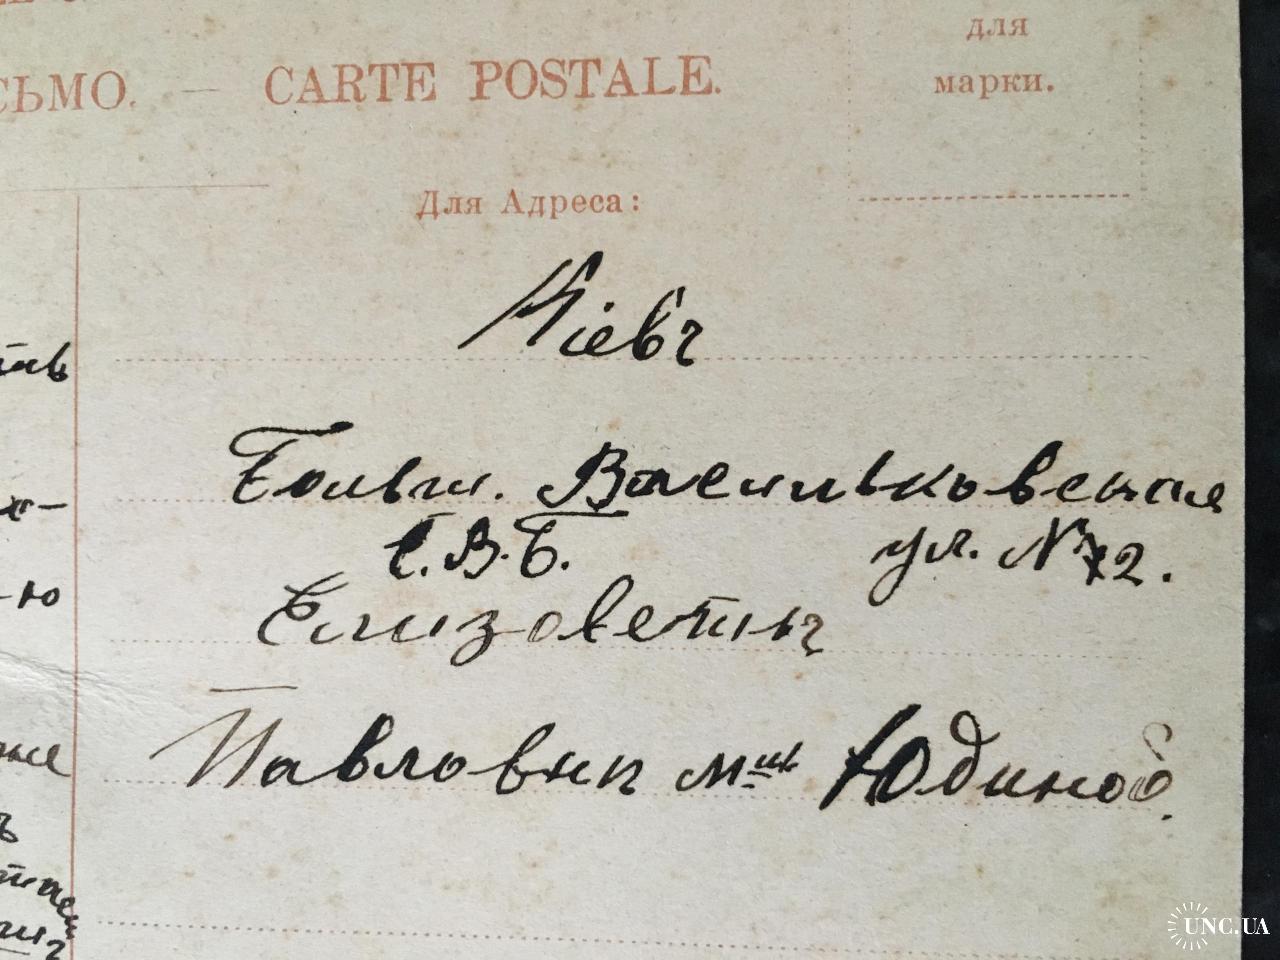 для
СЬМО. — CARTE POSTALE.
марки.
Для Адреса:
Кіевъ
Больш. Васильковская
Е.В.Б. ул. № 72.
Елизоветы
Павловны Юдиной.
-ю
UNC.UA